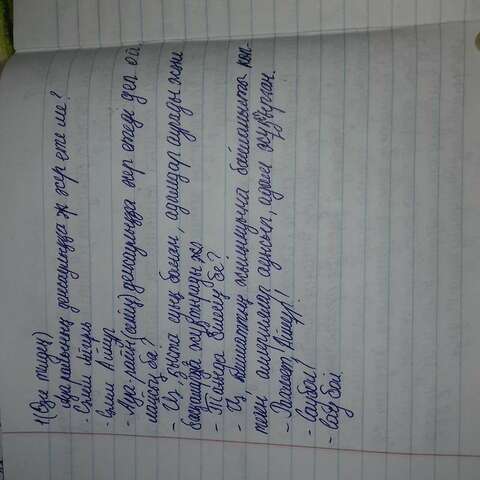 1(Өзге тілдең)
Ауа райының денсаулыққа ж жер ете ме?
- Сәлем Айгерль
- Сәлем Айнұр
- Ауа-райн(сенің) денсаулыққа жер етеді деп ой
лайсың ба?
- Из, қыста суық болған, адамдар ауырады және
басқаларға жұқтырады жә
- Тағыда білесің бе?
- Из, климаттың жылынуына байланысты көп-
теген ауысып, адам жұқтырған.
- Рахмет, Айнұр!
- Саубол!
- Сау бол.